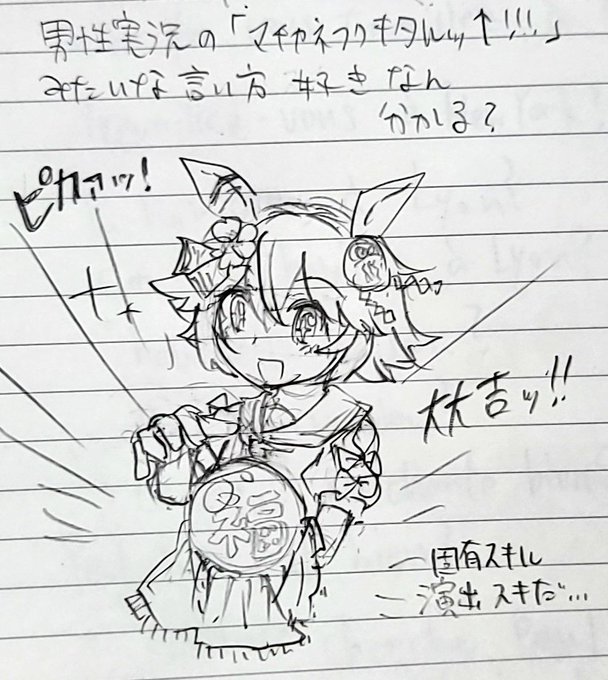 男性実況の「マチカネフクキタルッ↑!!!」
みたいな言い方好きなん
分かる?
ピカァッ!
大大吉ッ!!
福
固有スキル
演出スキだ…